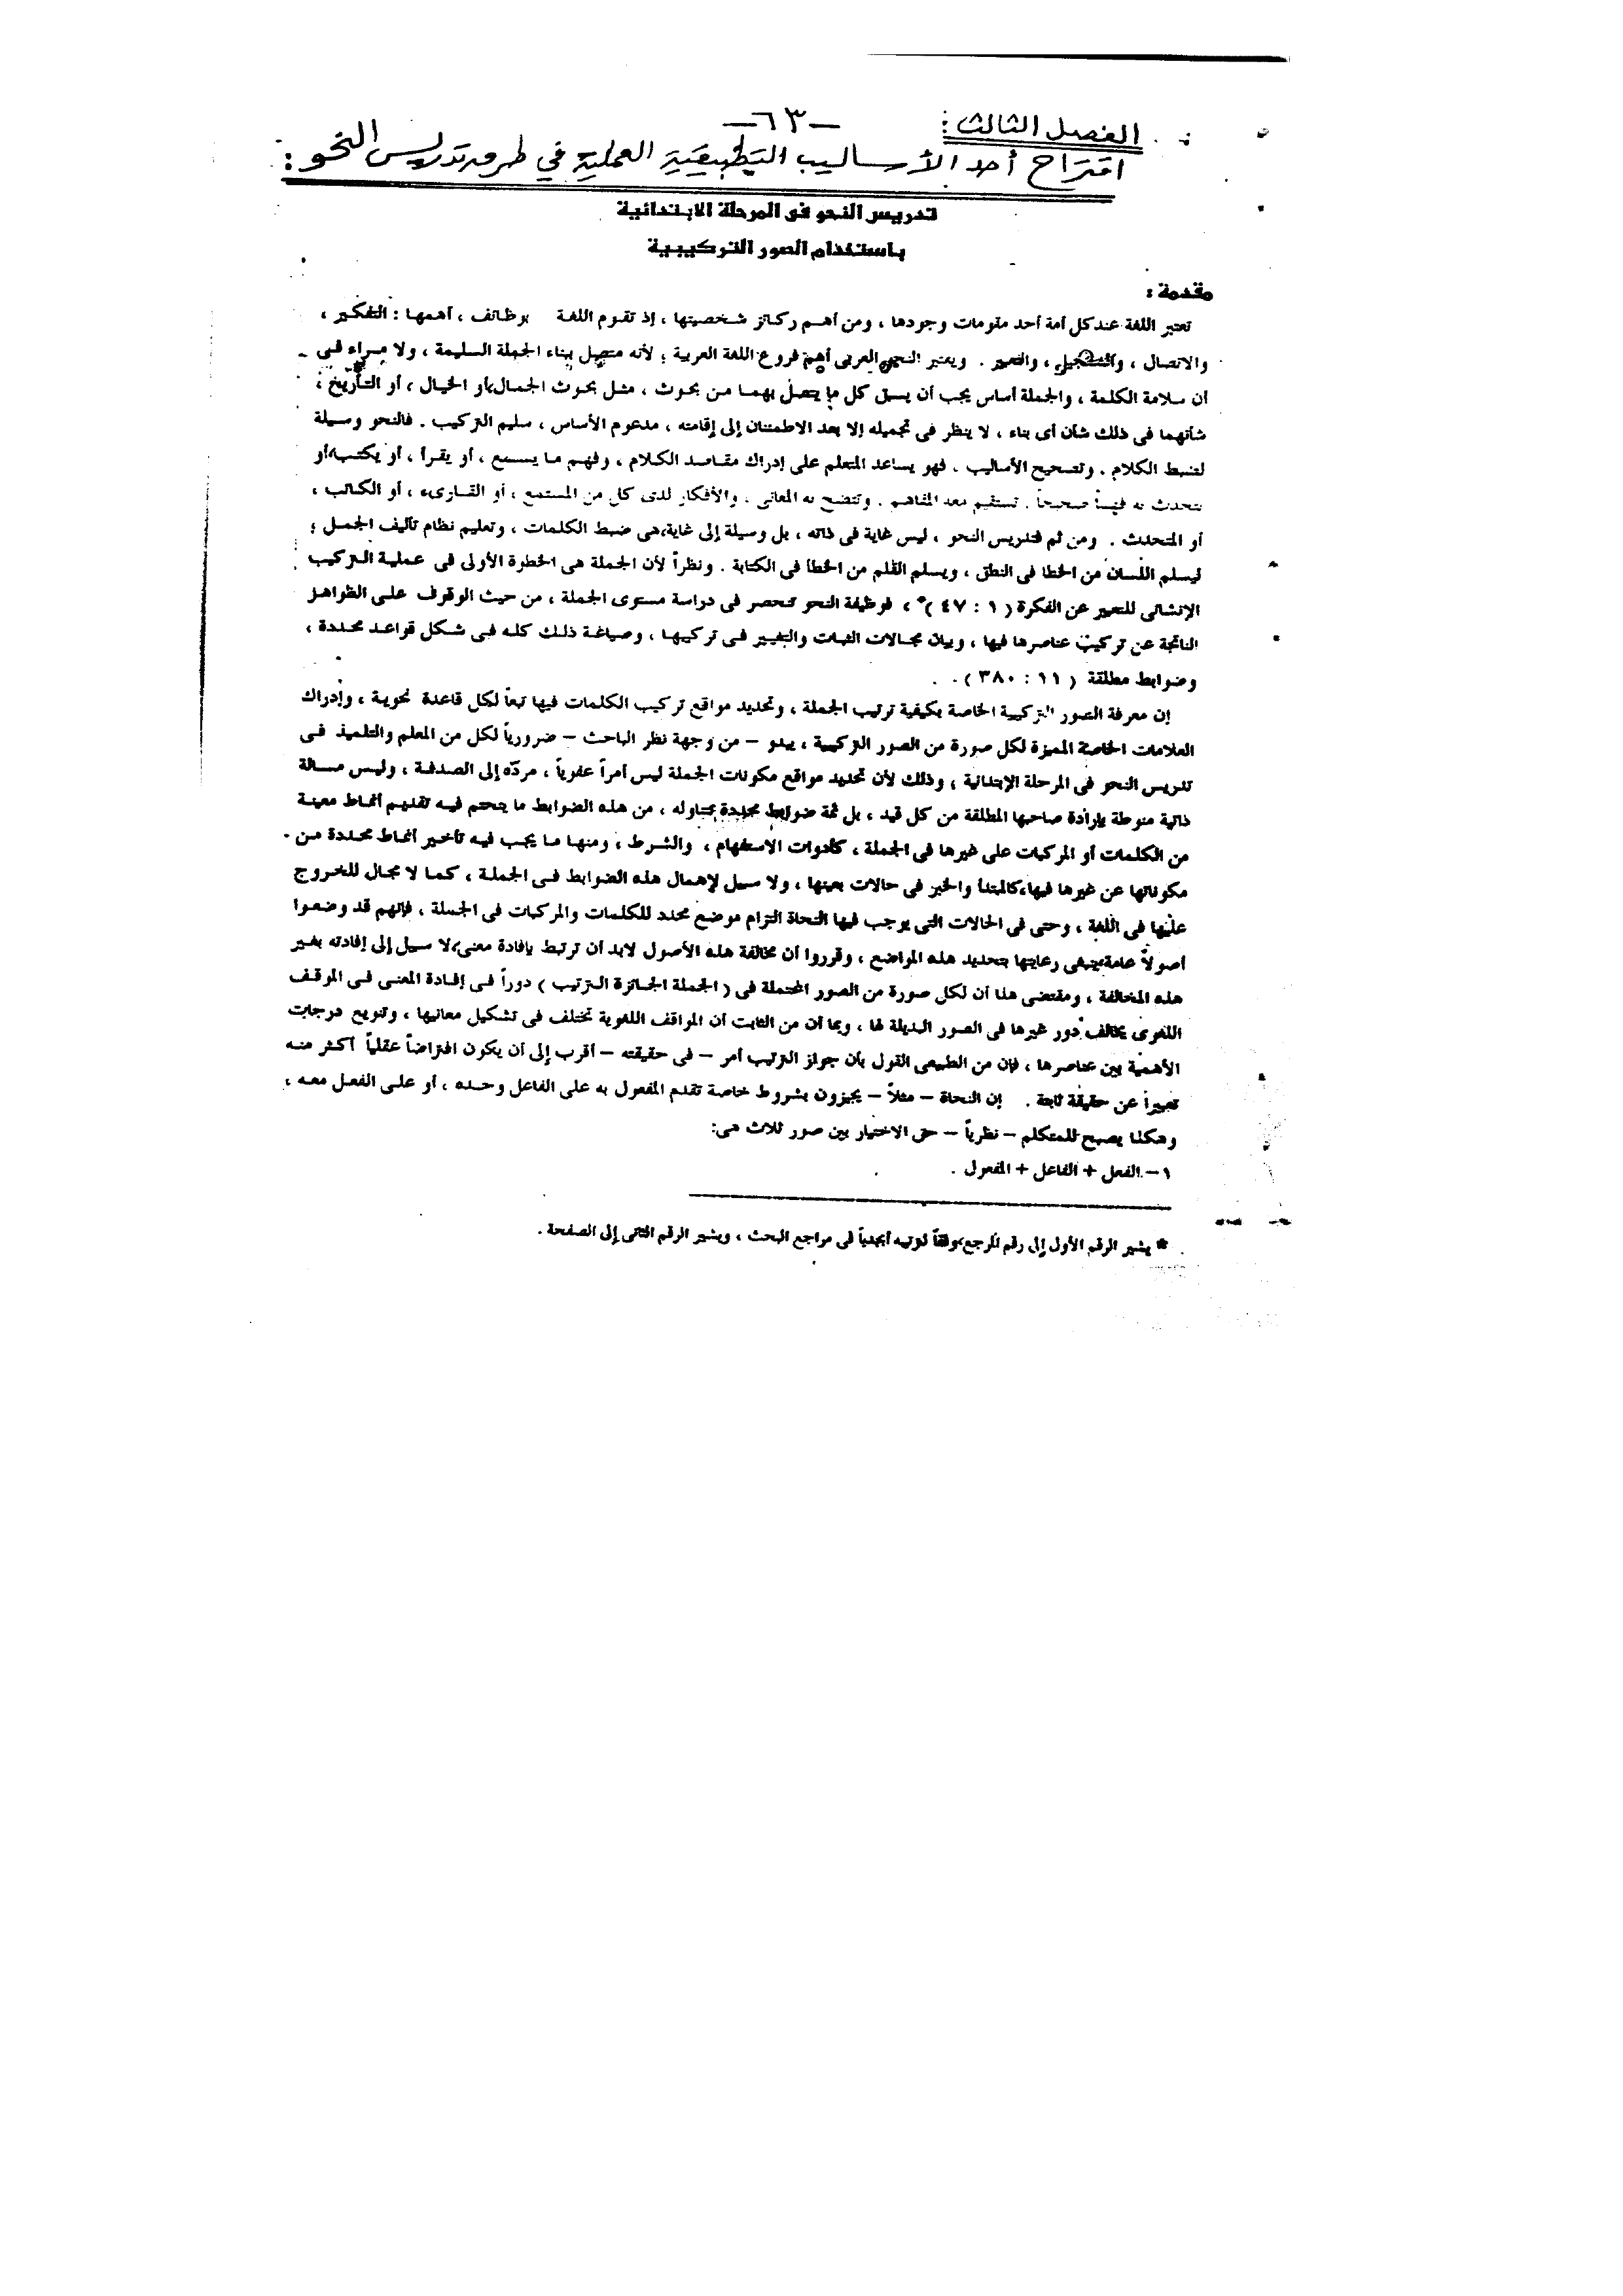 -٦٣-
الفصل الثالث :
اقتراح أحد الأساليب التطبيقية العملية في طرق تدريس النحو :
تدريس النحو فى المرحلة الابتدائية
باستخدام الصور التركيبية
مقدمة :
تعتبر اللغة عند كل أمة أحد مقومات وجودها ، ومن أهم ركائز شخصيتها ، إذ تقوم اللغة بوظائف ، أهمها : التفكير ،
والاتصال ، والتسجيل ، والتعبير . ويعتبر النحو العربى أهم فروع اللغة العربية ؛ لأنه متصل ببناء الجملة السليمة ، ولا مراء فى
أن سلامة الكلمة ، والجملة أساس يجب أن يسبق كل ما يتصل بهما من بحوث ، مثل بحوث الجمال،أو الخيال ، أو التأريخ ،
شأنهما فى ذلك شأن أى بناء ، لا ينظر فى تجميله إلا بعد الاطمئنان إلى إقامته ، مدعوم الأساس ، سليم التركيب . فالنحو وسيلة
لضبط الكلام . وتصحيح الأساليب . فهو يساعد المتعلم على إدراك مقاصد الكلام ، وفهم ما يسمع ، أو يقرأ ، أو يكتب،أو
يتحدث به فهماً صحيحاً . تستقيم معه المفاهيم . وتتضح به المعانى . والأفكار لدى كل من المستمع ، أو القارىء ، أو الكاتب ،
أو المتحدث . ومن ثم فتدريس النحو ، ليس غاية فى ذاته ، بل وسيلة إلى غاية،هى ضبط الكلمات ، وتعليم نظام تأليف الجمل ؛
ليسلم اللسان من الخطا فى النطق ، ويسلم القلم من الخطأ فى الكتابة . ونظراً لأن الجملة هى الخطوة الأولى فى عملية التركيب
الإنشائى للتعبير عن الفكرة ( ١ : ٤٧ )* ، فوظيفة النحو تنحصر فى دراسة مستوى الجملة ، من حيث الوقوف على الظواهر
الناتجة عن تركيب عناصرها فيها ، وبيان مجالات الثبات والتغيير فى تركيبها ، وصياغة ذلك كله فى شكل قواعد محددة ،
وضوابط مطلقة ( ١١ : ٣٨٠ ) .
إن معرفة الصور التركيبية الخاصة بكيفية ترتيب الجملة ، وتحديد مواقع تركيب الكلمات فيها تبعاً لكل قاعدة نحوية ، وإدراك
العلامات الخاصة المميزة لكل صورة من الصور التركيبية ، يبدو – من وجهة نظر الباحث – ضرورياً لكل من المعلم والتلميذ فى
تدريس النحو فى المرحلة الإبتدائية ؛ وذلك لأن تحديد مواقع مكونات الجملة ليس أمراً عفوياً ، مردّه إلى الصدفة ، وليس مسالة
ذاتية منوطة بإرادة صاحبها المطلقة من كل قيد ، بل ثمة ضوابط محددة تتناوله ، من هذه الضوابط ما يتحتم فيه تقديم أنماط معينة
من الكلمات أو المركبات على غيرها فى الجملة ، كأدوات الاستفهام ، والشرط ، ومنها ما يجب فيه تأخير أنماط محددة من
مكوناتها عن غيرها فيها،كالمبتدأ والخبر فى حالات بعينها ، ولا سبيل لإهمال هذه الضوابط فى الجملة ، كما لا مجال للخروج
عليها فى اللغة ، وحتى فى الحالات التى يوجب فيها النحاة التزام موضع محدد للكلمات والمركبات فى الجملة ، فإنهم قد وضعوا
أصولاً عامة،ينبغى رعايتها بتحديد هذه المواضع ، وقرروا أن مخالفة هذه الأصول لابد أن ترتبط بإفادة معنى،لا سبيل إلى إفادته بغير
هذه المخالفة ، ومقتضى هذا أن لكل صورة من الصور المحتملة فى ( الجملة الجائزة الترتيب ) دوراً فى إفادة المعنى فى الموقف
اللغوى يخالف دور غيرها فى الصور البديلة لها ، وبما أن من الثابت أن المواقف اللغوية تختلف فى تشكيل معانيها ، وتنويع درجات
الأهمية بين عناصرها ، فإن من الطبيعى القول بأن جواز الترتيب أمر – فى حقيقته – أقرب إلى أن يكون افتراضاً عقلياً أكثر منه
تعبيراً عن حقيقة ثابتة . إن النحاة – مثلاً – يجيزون بشروط خاصة تقدم المفعول به على الفاعل وحده ، أو على الفعل معه ،
وهكذا يصبح للمتكلم – نظرياً – حق الاختيار بين صور ثلاث هى:
١ – الفعل + الفاعل + المفعول .
* يشير الرقم الأول إلى رقم المرجع،وفقاً لترتيبه أبجدياً فى مراجع البحث ، ويشير الرقم الثانى إلى الصفحة .